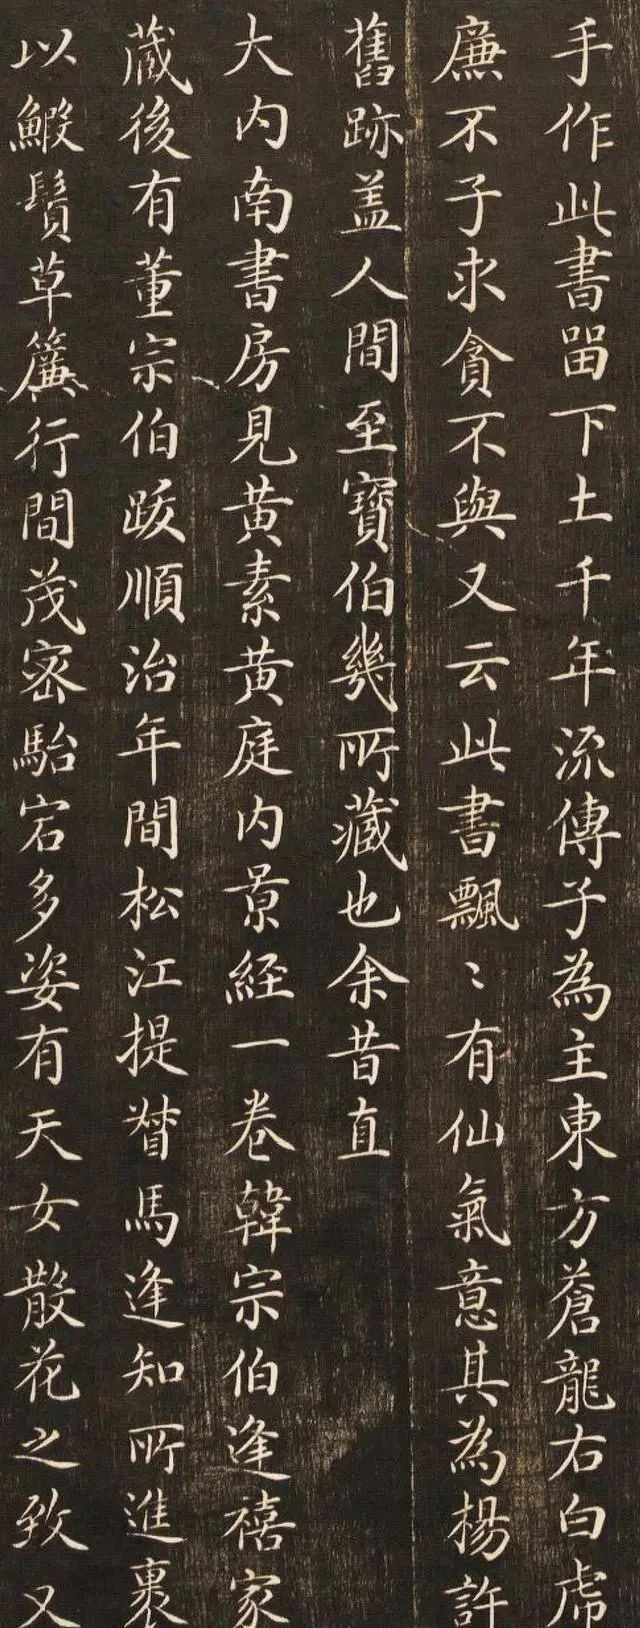 手作此書留下土千年流傳子為主東方蒼龍右白虎
廉不子求貪不與又云此書飄〻有仙氣意其為楊許
舊跡盖人間至寶伯幾所藏也余昔直
大内南書房見黄素黄庭内景經一卷韓宗伯逢禧家
藏後有董宗伯跋順治年間松江提督馬逢知所進裹
以鰕鬚草簾行間茂密駘宕多姿有天女散花之致又